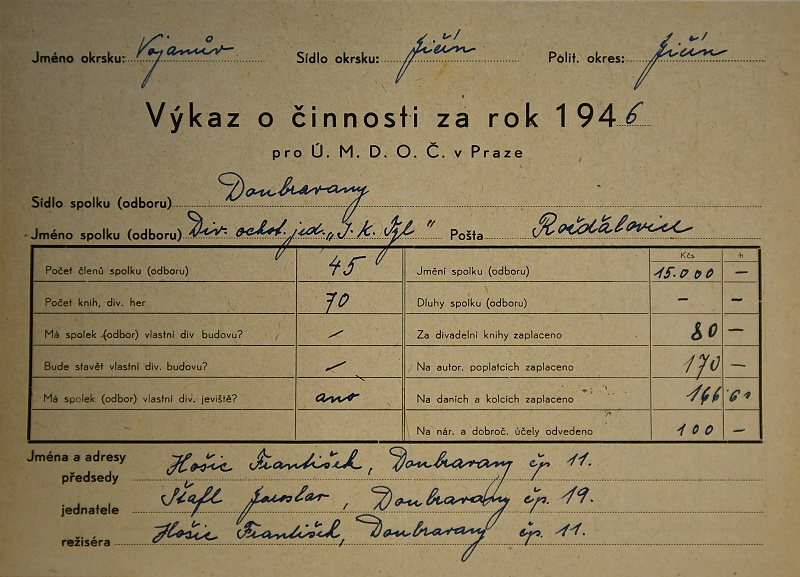 Jméno okrsku: Vojanův Sídlo okrsku: Jičín Polit. okres: Jičín
Výkaz o činnosti za rok 1946
pro Ú. M. D. O. Č. v Praze
Sídlo spolku (odboru) Doubravany
Jméno spolku (odboru) Div. ochot. jed. „J. K. Tyl" Pošta Rožďalovice
Kčs h
Počet členů spolku (odboru) 45 Jmění spolku (odboru) 15.000 —
Počet knih, div. her 70 Dluhy spolku (odboru) — —
Má spolek (odbor) vlastní div budovu? — Za divadelní knihy zaplaceno 80 —
Bude stavět vlastní div. budovu? — Na autor. poplatcích zaplaceno 170 —
Má spolek (odbor) vlastní div. jeviště? ano Na daních a kolcích zaplaceno 166 60
Na nár. a dobroč. účely odvedeno 100 —
Jména a adresy
předsedy Hošic František, Doubravany čp 11.
jednatele Štafl Jaroslav, Doubravany čp. 19.
režiséra Hošic František, Doubravany čp. 11.